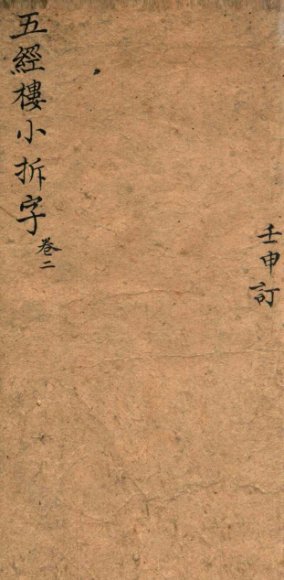 壬申訂
五經樓小拆字卷二